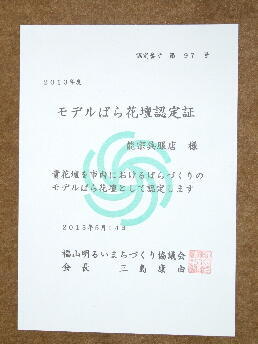 認定番号 第 97 号
2013年度
モデルばら花壇認定証
能宗呉服店 様
貴花壇を市内におけるばらづくりの
モデルばら花壇として認定します
2013年5月14日
福山明るいまちづくり協議会
会長 三島康由